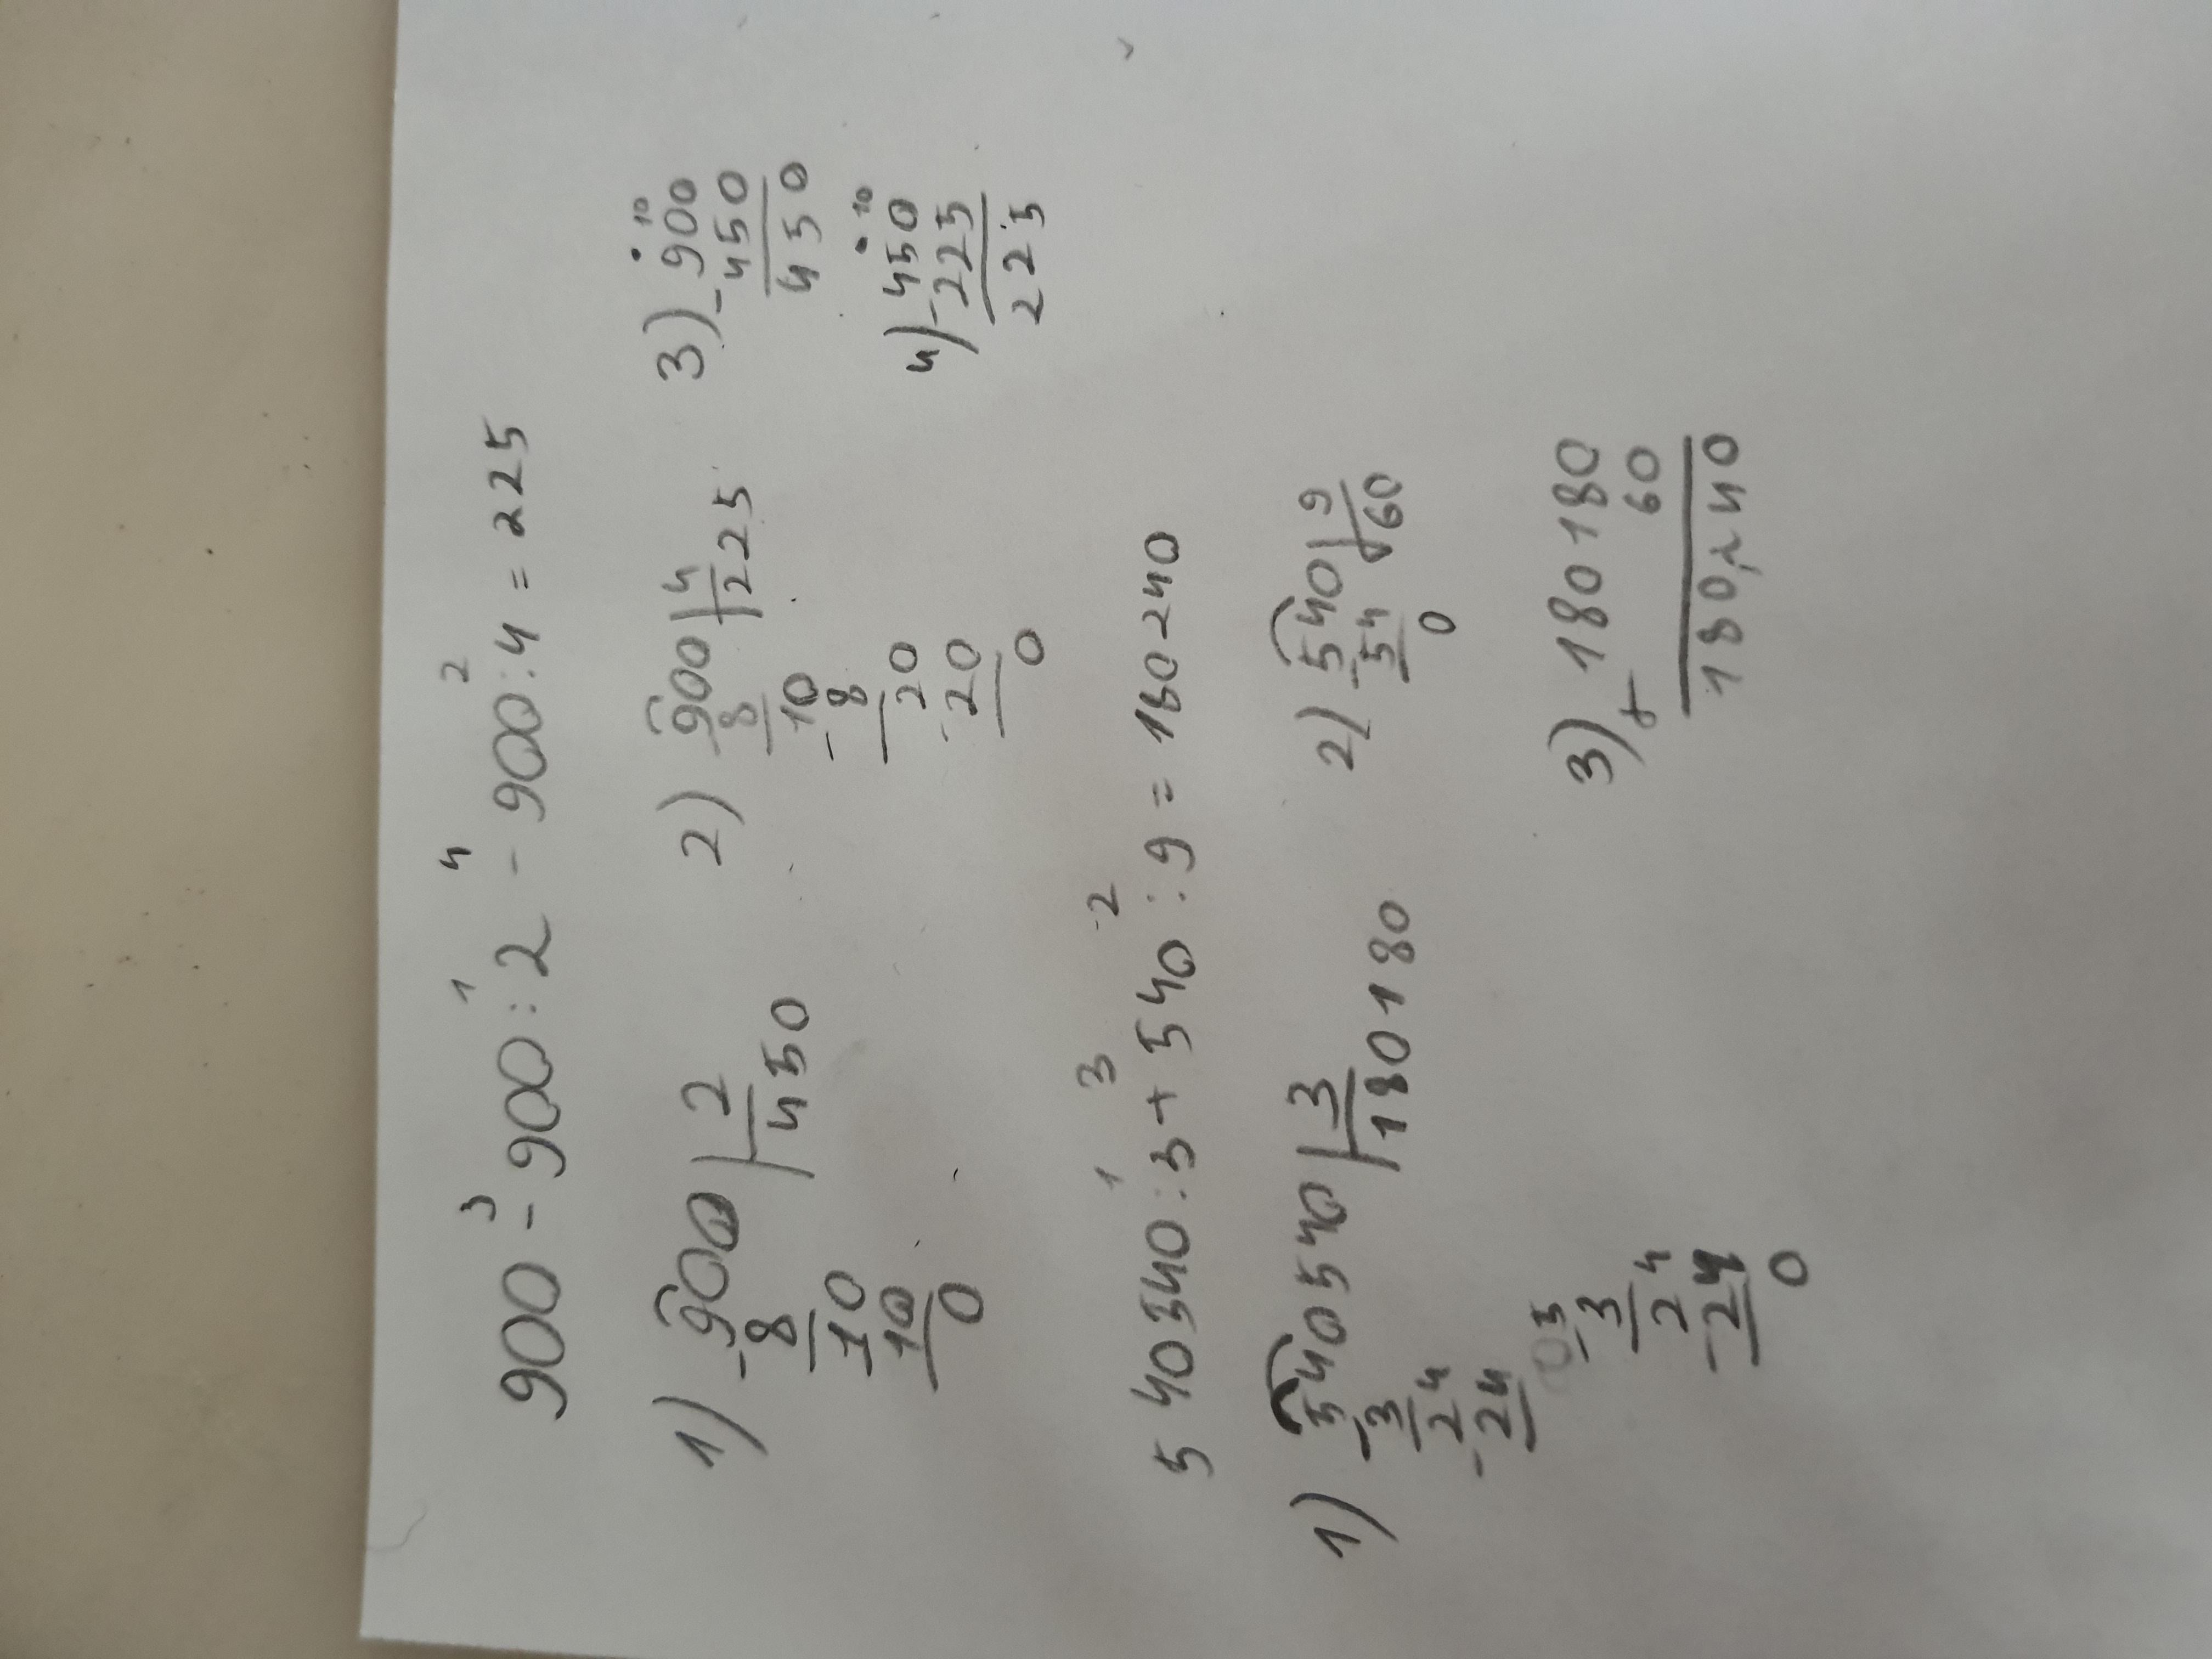 3 1 4 2
900 - 900 : 2 - 900 : 4 = 225
1) 900 | 2
- 8 | 450
10
10
0
2) 900 | 4
8 | 225
10
- 8
20
20
0
3) 900
- 450
450
4) 450
- 225
225
1 3 2
5 40540 : 3 + 540 : 9 = 180 240
1) 540540 | 3
- 3 | 180180
24
- 24
05
- 3
24
- 24
0
2) 540 | 9
- 54 | 60
0
3) 180 180
+ 60
180 240